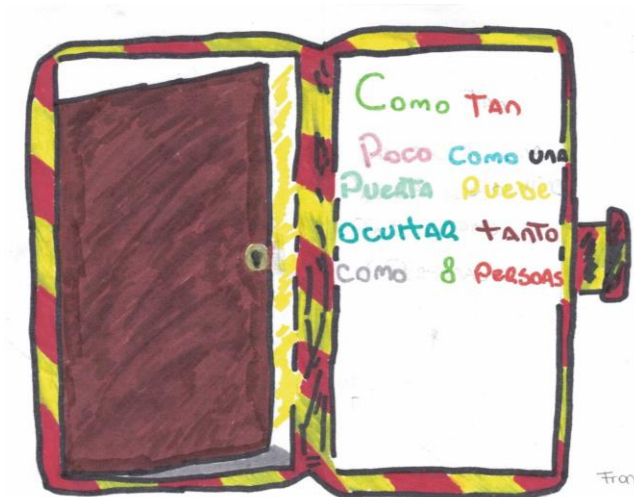 Como TAN
Poco Como UNA
PUERTA PUEDE
OCULTAR TANTO
COMO 8 PERSOAS
Fran